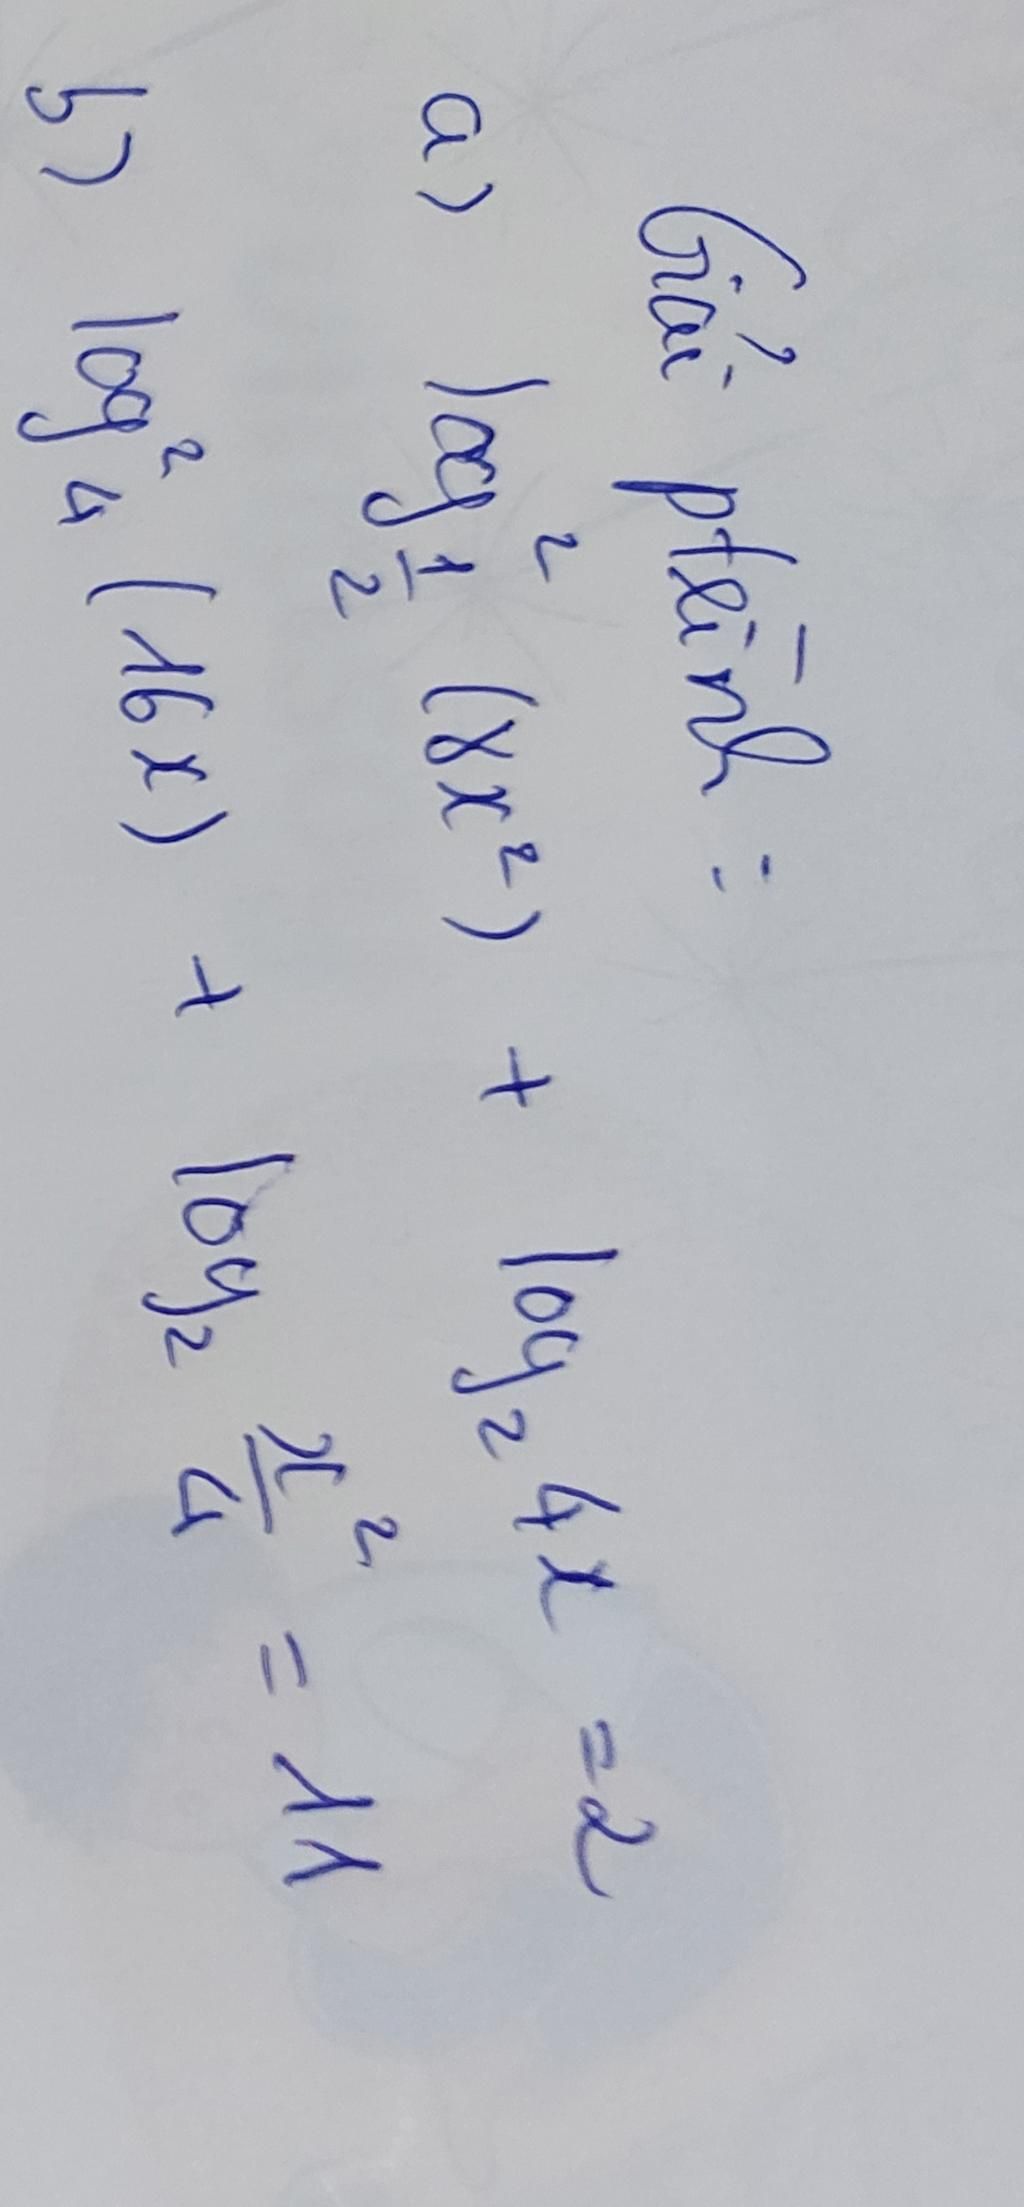 Giải ptrình :
a) log²_{1/2} (8x²) + log₂ 4x = 2
b) log²₄ (16x) + log₂ x²/4 = 11